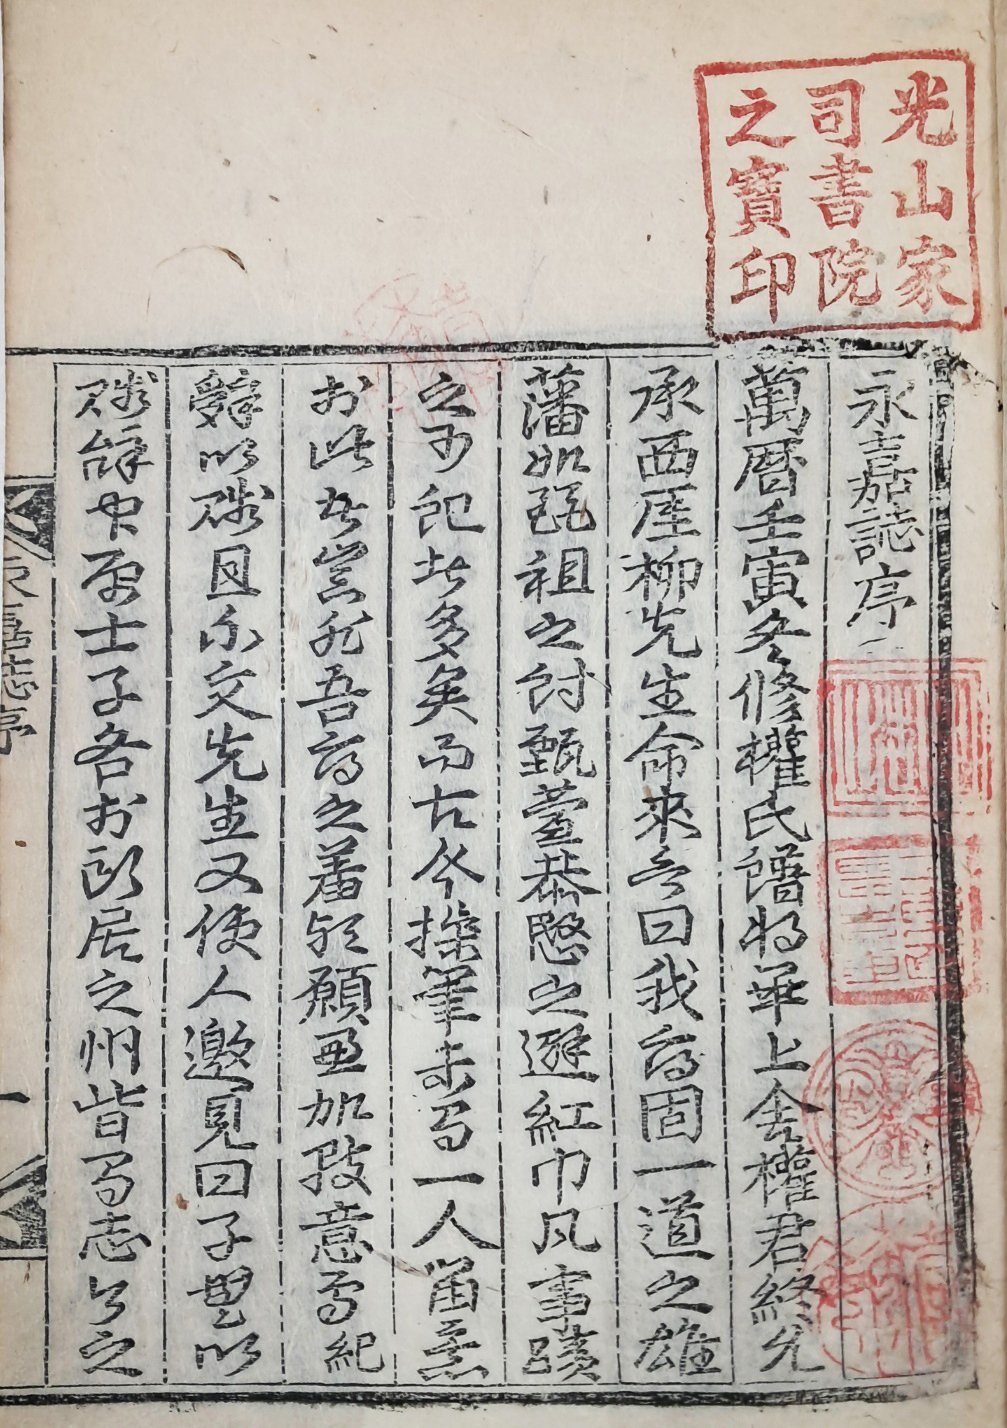 光山家
司書院
之寶印
永嘉誌序
萬曆壬寅冬修權氏譜將畢上舍權君終允
承西厓柳先生命來言曰我府固一道之雄
藩如麗祖之討甄萱恭愍之避紅巾凡事蹟
之可記者多矣而古今操筆未有一人留意
於此者豈非吾府之羞歟願更加致意焉紀
辭以賤且不文先生又使人邀見曰子毋以
賤辭中原士子各於所居之州皆有志公之
永嘉志序
一